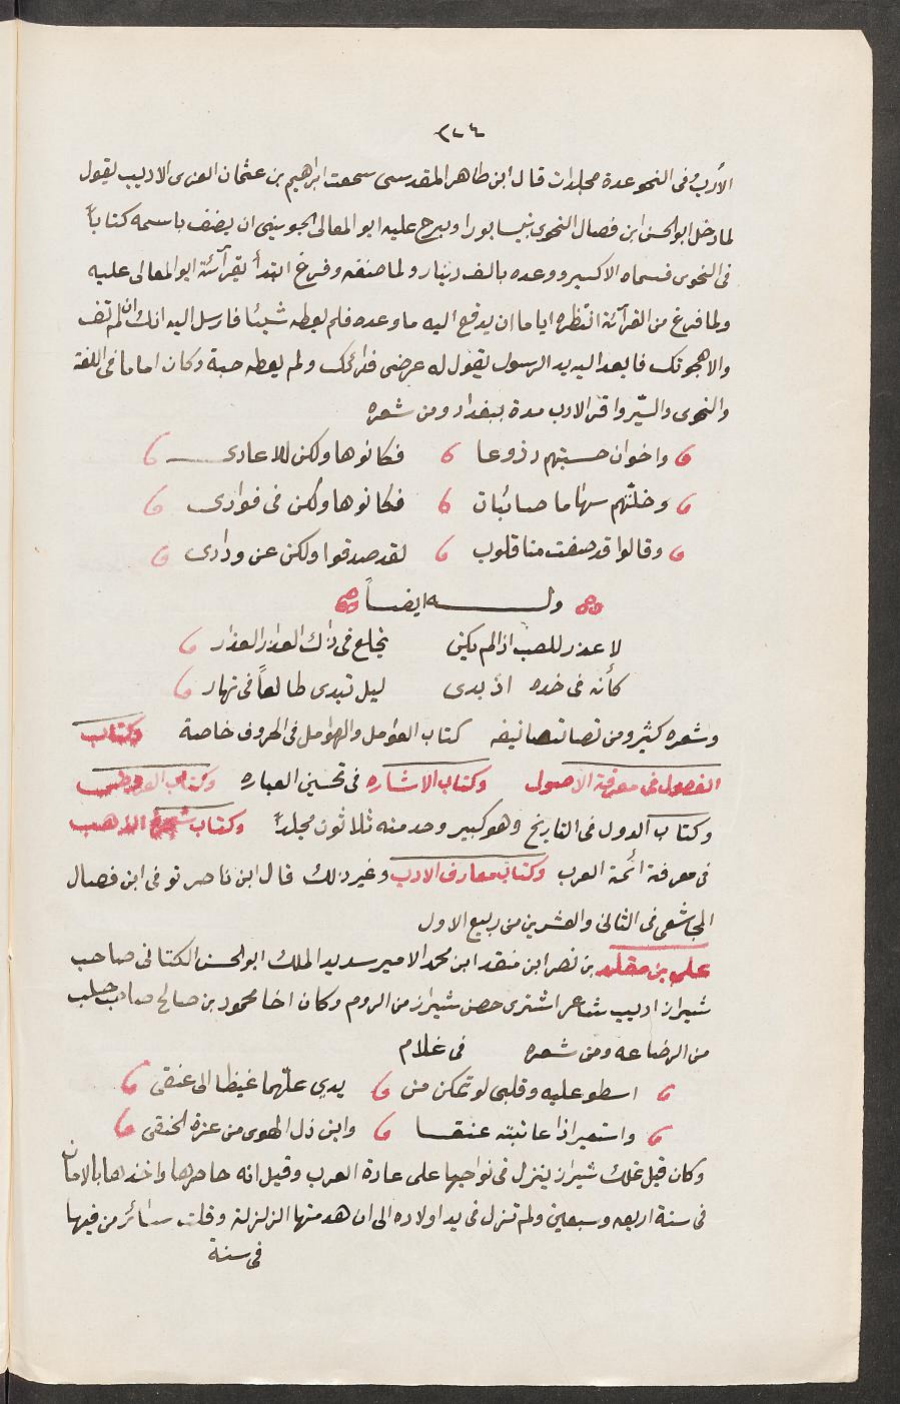 ٢٧٤
الأرب فى النحو عدة مجلدات قال ابن طاهر المقدسى سمعت ابراهيم بن عثمان الغزى الاديب يقول
لما دخل ابو الحسن ابن فصال النحوى نيسابور اوبرح عليه ابو المعالى الجوينى ان يصنف باسمه كتاباً
فى النحوى فسماه الاكسير ووعده بالف دينار ولما صنفه وفرغ ابتدأ بقرآئة ابو المعالى عليه
ولما فرغ من القرآئة انتظره اياما ان يدفع اليه ما وعده فلم يعطه شيئا فارسل اليه انك ان لم تف
والا هجوتك فابعد اليه يد الرسول يقول له عرضى فداؤك ولم يعطه حبة وكان اماما فى اللغة
والنحوى والسير واقرا الادب مدة ببغداد ومن شعره
واخوان حسبتهم دزوعا فكانوها ولكن للاعادى
وخلتهم سهاما صائبات فكانوها ولكن فى فوادى
وقالوا قد صفت منا قلوب لقد صدقوا ولكن عن ودادى
وله ايضاً
لا عذر للصب اذا لم يكن يخلع فى ذاك العذار العذار
كأنه فى خده اذ بدى ليل تبدى طالعاً فى نهار
وشعره كثير ومن تصانيفه كتاب العوامل والهوامل فى الحروف خاصة وكتاب
الفصول فى معرفة الاصول وكتاب الاشاره فى تحسين العباره وكتاب
وكتاب الدول فى التاريخ وهو كبير وحد منه ثلاثون مجلداً وكتاب شجرة الذهب
فى معرفة ائمة العرب وكتاب معارف الادب وغير ذلك قال ابن ناصر توفى ابن فصال
المجاشعى فى الثانى والعشرين من ربيع الاول
على بن مقلد بن نصر ابن منقد ابن محمد الامير سديد الملك ابو الحسن الكتانى صاحب
شيراز اديب شاعر اشترى حصن شيراز من الروم وكان اخا محمود بن صالح صاحب حلب
من الرضاعه ومن شعره فى غلام
اسطو عليه وقلبى لو تمكن من يدى علتهما غيظا الى عنقى
واستعير اذا عاتبته عنقا واين ذل الهوى من عزة الحنقى
وكان قبل تملك شيراز ينزل فى نواحيها على عادة العرب وقيل انه حاصرها واخذها بالامان
فى سنة اربعه وسبعين ولم تزل فى يد اولاده الى ان هدمتها الزلزلة وقلت سائر من فيها
فى سنة